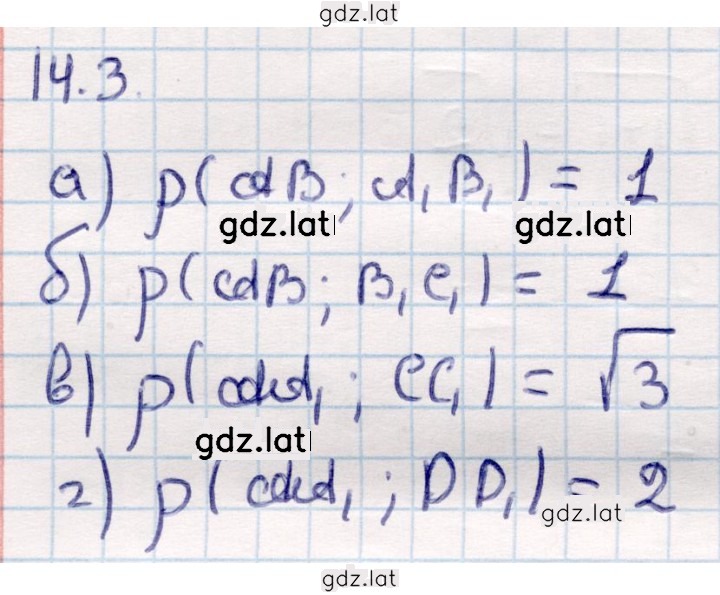 gdz.lat
14.3.
а) p(AB; A₁B₁) = 1
gdz.lat gdz.lat
б) p(AB; B₁C₁) = 1
в) p(AA₁; CC₁) = √3
gdz.lat
г) p(AA₁; DD₁) = 2
gdz.lat
gdz.lat